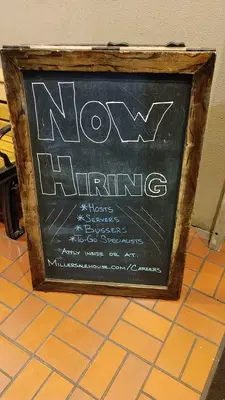 Now
Hiring
*Hosts
*Servers
*Bussers
*To-Go Specialists
*Apply inside or at:
Millersalehouse.com/Careers